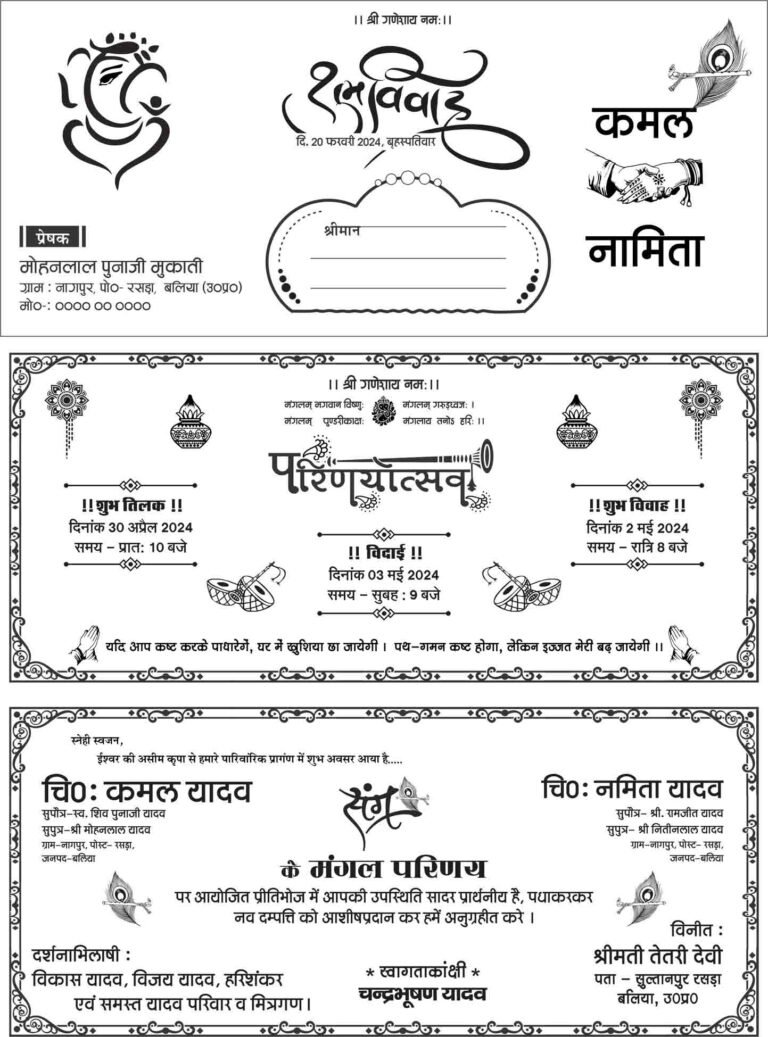 ।। श्री गणेशाय नमः।।
शुभविवाह
दि. 20 फरवरी 2024, बृहस्पतिवार
कमल
नामिता
श्रीमान
प्रेषक
मोहनलाल पुनाजी मुकाती
ग्राम : नागपुर, पो०- रसड़ा, बलिया (उ०प्र०)
मो०-: ०००० ०० ००००
।। श्री गणेशाय नमः।।
मंगलम् भगवान विष्णुः मंगलम् गरुड़ध्वजः ।
मंगलम् पुण्डरीकाक्षः मंगलाय तनोऽ हरिः ।।
परिणयोत्सव
!! शुभ तिलक !!
दिनांक 30 अप्रैल 2024
समय – प्रात: 10 बजे
!! विदाई !!
दिनांक 03 मई 2024
समय – सुबह : 9 बजे
!! शुभ विवाह !!
दिनांक 2 मई 2024
समय – रात्रि 8 बजे
यदि आप कष्ट करके पाधारेगें, घर में खुशिया छा जायेगी । पथ-गमन कष्ट होगा, लेकिन इज्जत मेरी बढ़ जायेगी ।।
स्नेही स्वजन,
ईश्वर की असीम कृपा से हमारे पारिवारिक प्रागंण में शुभ अवसर आया है.....
चि०: कमल यादव
सुपौत्र-स्व. शिव पुनाजी यादव
सुपुत्र-श्री मोहनलाल यादव
ग्राम-नागपुर, पोस्ट- रसड़ा,
जनपद-बलिया
संग
चि०: नमिता यादव
सुपौत्र- श्री. रामजीत यादव
सुपुत्र- श्री नितीनलाल यादव
ग्राम-नागपुर, पोस्ट- रसड़ा,
जनपद-बलिया
के मंगल परिणय
पर आयोजित प्रीतिभोज में आपकी उपस्थिति सादर प्रार्थनीय है, पधाकरकर
नव दम्पत्ति को आशीषप्रदान कर हमें अनुग्रहीत करे ।
दर्शनाभिलाषी :
विकास यादव, विजय यादव, हरिशंकर
एवं समस्त यादव परिवार व मित्रगण।
* स्वागताकांक्षी *
चन्द्रभूषण यादव
विनीत :
श्रीमती तेतरी देवी
पता – सुल्तानपुर रसड़ा
बलिया, उ०प्र०